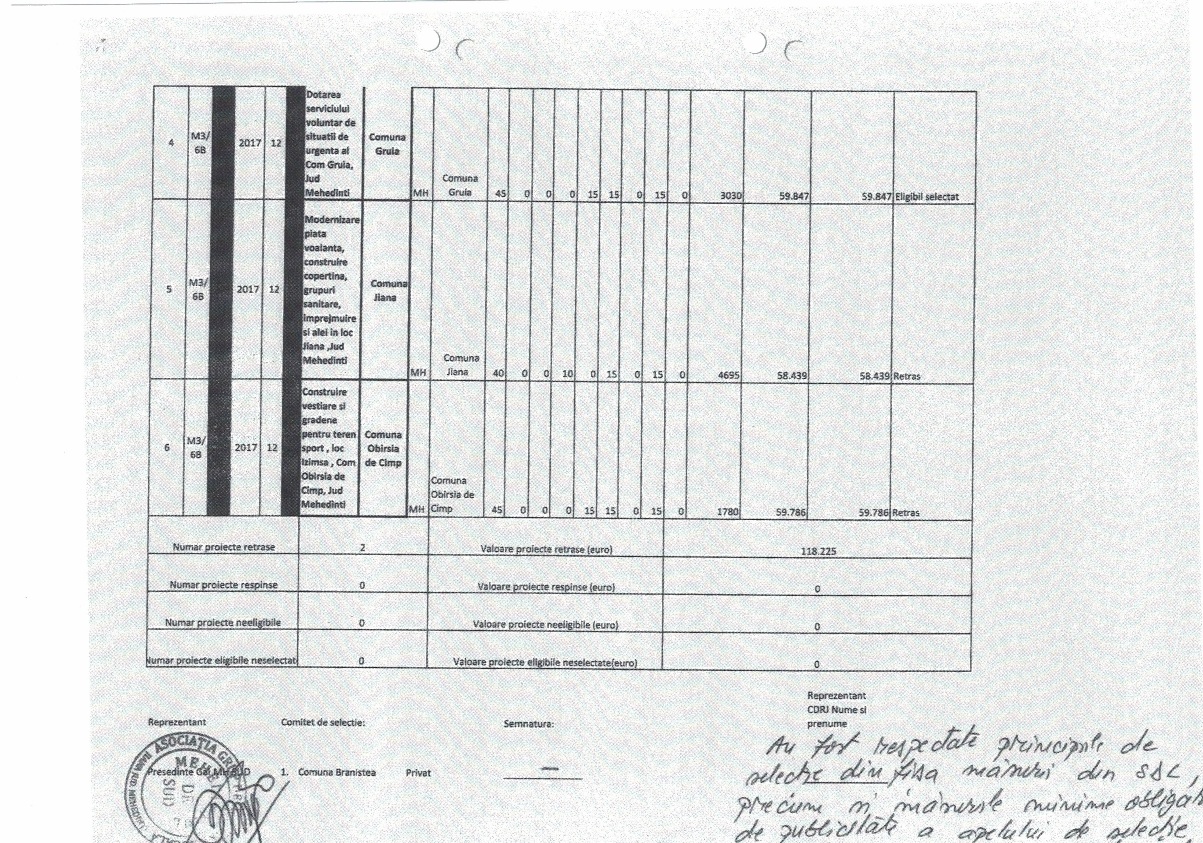 4 M3/ 6B 2017 12 Dotarea serviciului voluntar de situatii de urgenta al Com Gruia, Jud Mehedinti Comuna Gruia MH Comuna Gruia 45 0 0 0 15 15 0 15 0 3030 59.847 59.847 Eligibil selectat
5 M3/ 6B 2017 12 Modernizare piata voalanta, construire copertina, grupuri sanitare, imprejmuire si alei in loc Jiana ,Jud Mehedinti Comuna Jiana MH Comuna Jiana 40 0 0 10 0 15 0 15 0 4695 58.439 58.439 Retras
6 M3/ 6B 2017 12 Construire vestiare si gradene pentru teren sport , loc Izimsa , Com Obirsia de Cimp, Jud Mehedinti Comuna Obirsia de Cimp MH Comuna Obirsia de Cimp 45 0 0 0 15 15 0 15 0 1780 59.786 59.786 Retras
Numar proiecte retrase 2 Valoare proiecte retrase (euro) 118.225
Numar proiecte respinse 0 Valoare proiecte respinse (euro) 0
Numar proiecte neeligibile 0 Valoare proiecte neeligibile (euro) 0
Numar proiecte eligibile neselectat 0 Valoare proiecte eligibile neselectate(euro) 0
Reprezentant
CDRJ Nume si
prenume
Reprezentant Comitet de selectie: Semnatura:
ASOCIAȚIA
Presedinte Gal SUD 1. Comuna Branistea Privat
Au fost respectate principiile de
selecție din fișa măsurii din SDL,
precum și măsurile minime
de publicitate a apelului de selecție,